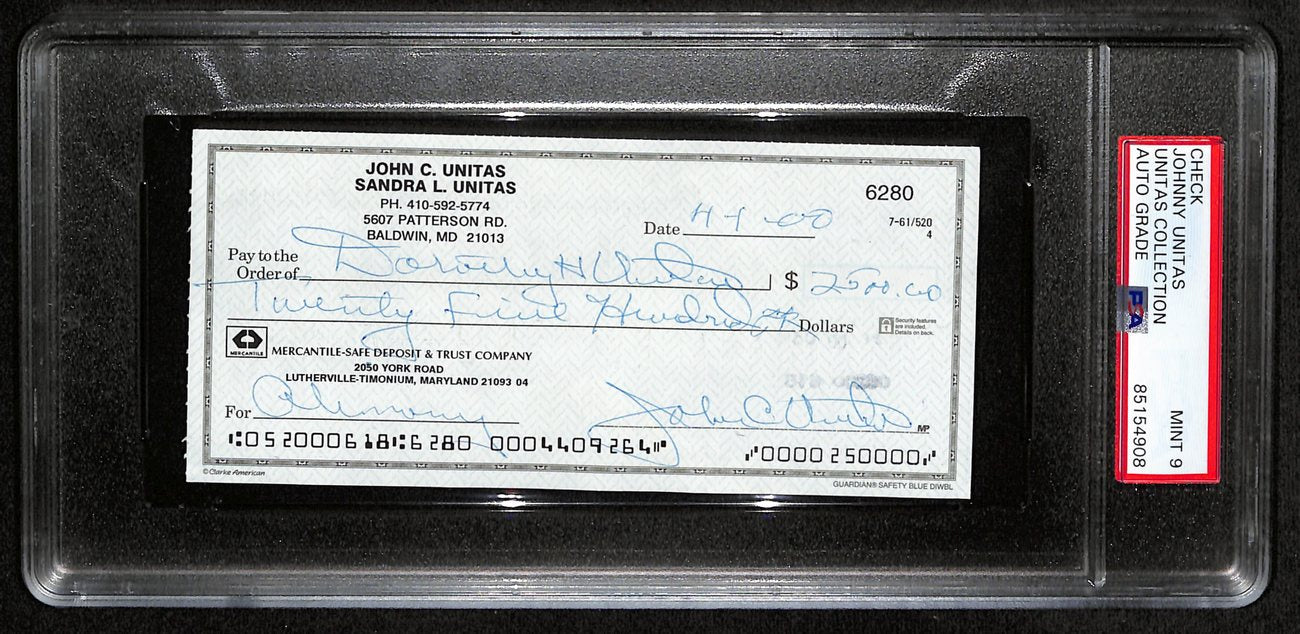 JOHN C. UNITAS
SANDRA L. UNITAS
PH. 410-592-5774
5607 PATTERSON RD.
BALDWIN, MD 21013
6280
Date 4-1-00
7-61/520
4
Pay to the
Order of Dorothy H Unitas $ 2500.00
Twenty Five Hundred Dollars
Security features
are included.
Details on back.
MERCANTILE
MERCANTILE-SAFE DEPOSIT & TRUST COMPANY
2050 YORK ROAD
LUTHERVILLE-TIMONIUM, MARYLAND 21093 04
For Alimony John C Unitas
MP
⑆052000618⑆6280 0004409264⑈ ⑇0000250000⑇
© Clarke American
GUARDIAN® SAFETY BLUE DIWBL
CHECK
JOHNNY UNITAS
UNITAS COLLECTION
AUTO GRADE
PSA
MINT 9
85154908